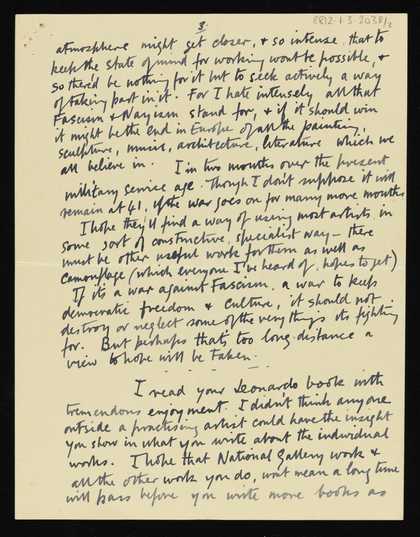 3
8812.1.3.2038/3
atmosphere might get closer, & so intense, that to
keep the state of mind for working won't be possible, &
so there'd be nothing for it but to seek actively a way
of taking part in it. For I hate intensely all that
Fascism & Nazism stand for, & if it should win
it might be the end in Europe of all the painting,
sculpture, music, architecture, literature which we
all believe in. I'm two months over the present
military service age. Though I don't suppose it will
remain at 41, if the war goes on for many more months
I hope they'll find a way of using most artists in
some sort of constructive, specialist way – there
must be other useful work for them as well as
camouflage (which everyone I've heard of, hopes to get)
If it's a war against Fascism, a war to keep
democratic freedom & culture, it should not
destroy or neglect some of the very things its fighting
for. But perhaps that's too long-distance a
view to hope will be taken.
I read your Leonardo book with
tremendous enjoyment. I didn't think anyone
outside a practising artist could have the insight
you show in what you write about the individual
works. I hope that National Gallery work &
all the other work you do, wont mean a long time
will pass before you write more books as